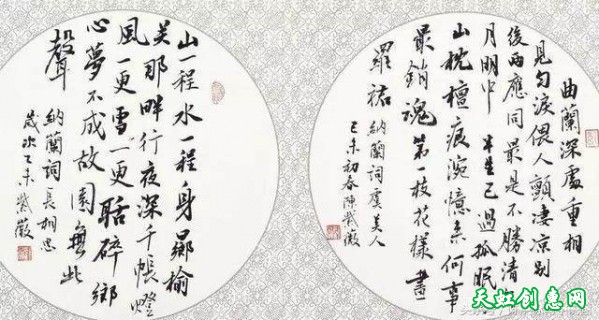 曲蘭深處重相
見勻淚偎人顫淒涼別
後兩應同最是不勝清
月明中半生已過孤眠
山枕檀痕涴憶來何事
最銷魂第一枝花樣畫
羅裙 納蘭詞虞美人
乙未初春陳紫薇
山一程水一程身鄉榆
关那畔行夜深千帳燈
風一更雪一更聒碎鄉
心夢不成故園無此
聲 納蘭詞長相思
歲次乙未紫薇
天虹创意网